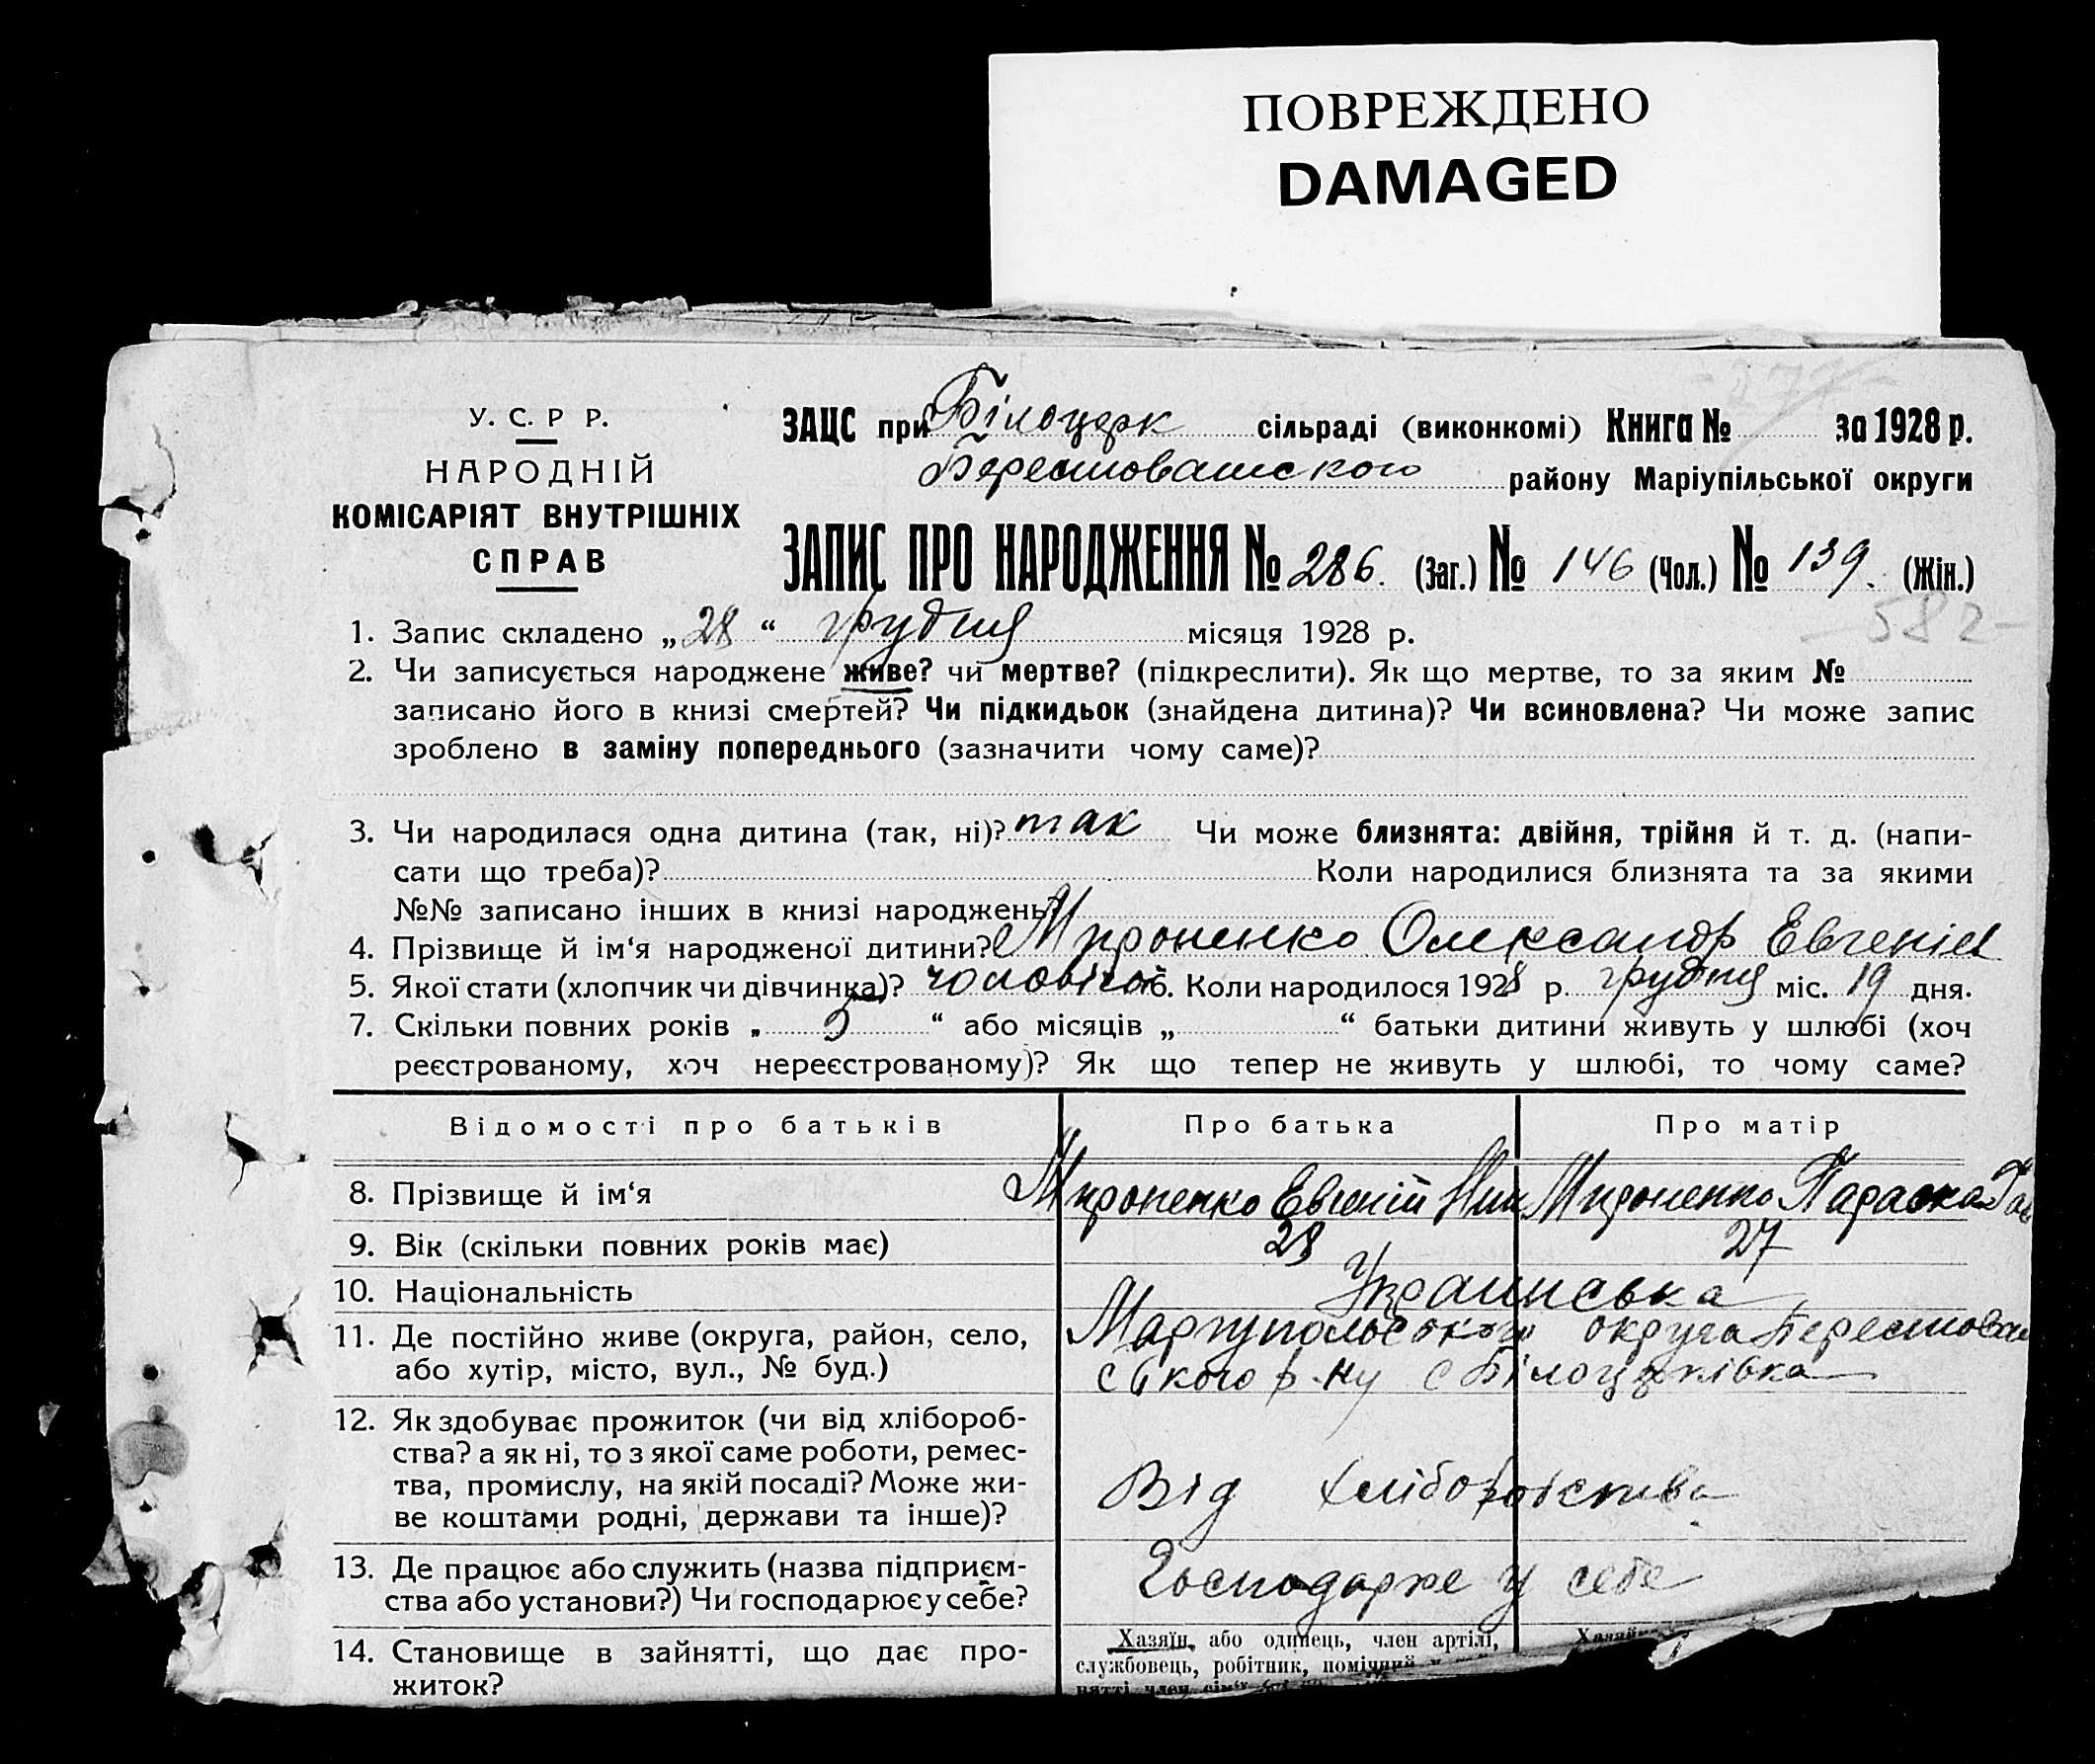 ПОВРЕЖДЕНО
DAMAGED
- 582 -
У. С. Р Р.
НАРОДНІЙ
КОМІСАРІЯТ ВНУТРІШНІХ
СПРАВ
ЗАЦС при Білоцерк сільраді (виконкомі) Книга № за 1928 р.
Берестоватского району Маріупільської округи
ЗАПИС ПРО НАРОДЖЕННЯ № 286. (Заг.) № 146 (Чол.) № 139. (Жін.)
1. Запис складено „28“ грудня місяця 1928 р.
2. Чи записується народжене живе? чи мертве? (підкреслити). Як що мертве, то за яким №
записано його в книзі смертей? Чи підкидьок (знайдена дитина)? Чи всиновлена? Чи може запис
зроблено в заміну попереднього (зазначити чому саме)?
3. Чи народилася одна дитина (так, ні)? так Чи може близнята: двійня, трійня й т. д. (напи-
сати що треба)? Коли народилися близнята та за якими
№№ записано інших в книзі народжень?
4. Прізвище й ім‘я народженої дитини? Мироненко Олександр Евгеніев
5. Якої стати (хлопчик чи дівчинка)? чоловічої 6. Коли народилося 1928 р. грудня міс. 19 дня.
7. Скільки повних років „ 5 “ або місяців „ “ батьки дитини живуть у шлюбі (хоч
реєстрованому, хоч нереєстрованому)? Як що тепер не живуть у шлюбі, то чому саме?
Відомості про батьків Про батька Про матір
8. Прізвище й ім‘я Мироненко Евгеній Мироненко Параска
9. Вік (скільки повних років має) 28 27
10. Національність Украинська
11. Де постійно живе (округа, район, село, Маріупольської округа Берестова
або хутір, місто, вул., № буд.) ського р-ну с Білоцерківка
12. Як здобуває прожиток (чи від хлібороб-
ства? а як ні, то з якої саме роботи, ремес-
тва, промислу, на якій посаді? Може жи- Від хліборобства
ве коштами родні, держави та інше)?
13. Де працює або служить (назва підприєм- Господарює у себе
ства або установи?) Чи господарює у себе?
14. Становище в зайнятті, що дає про- Хазяїн, або одинець, член артілі, Хазяїн
житок? службовець, робітник, помічний